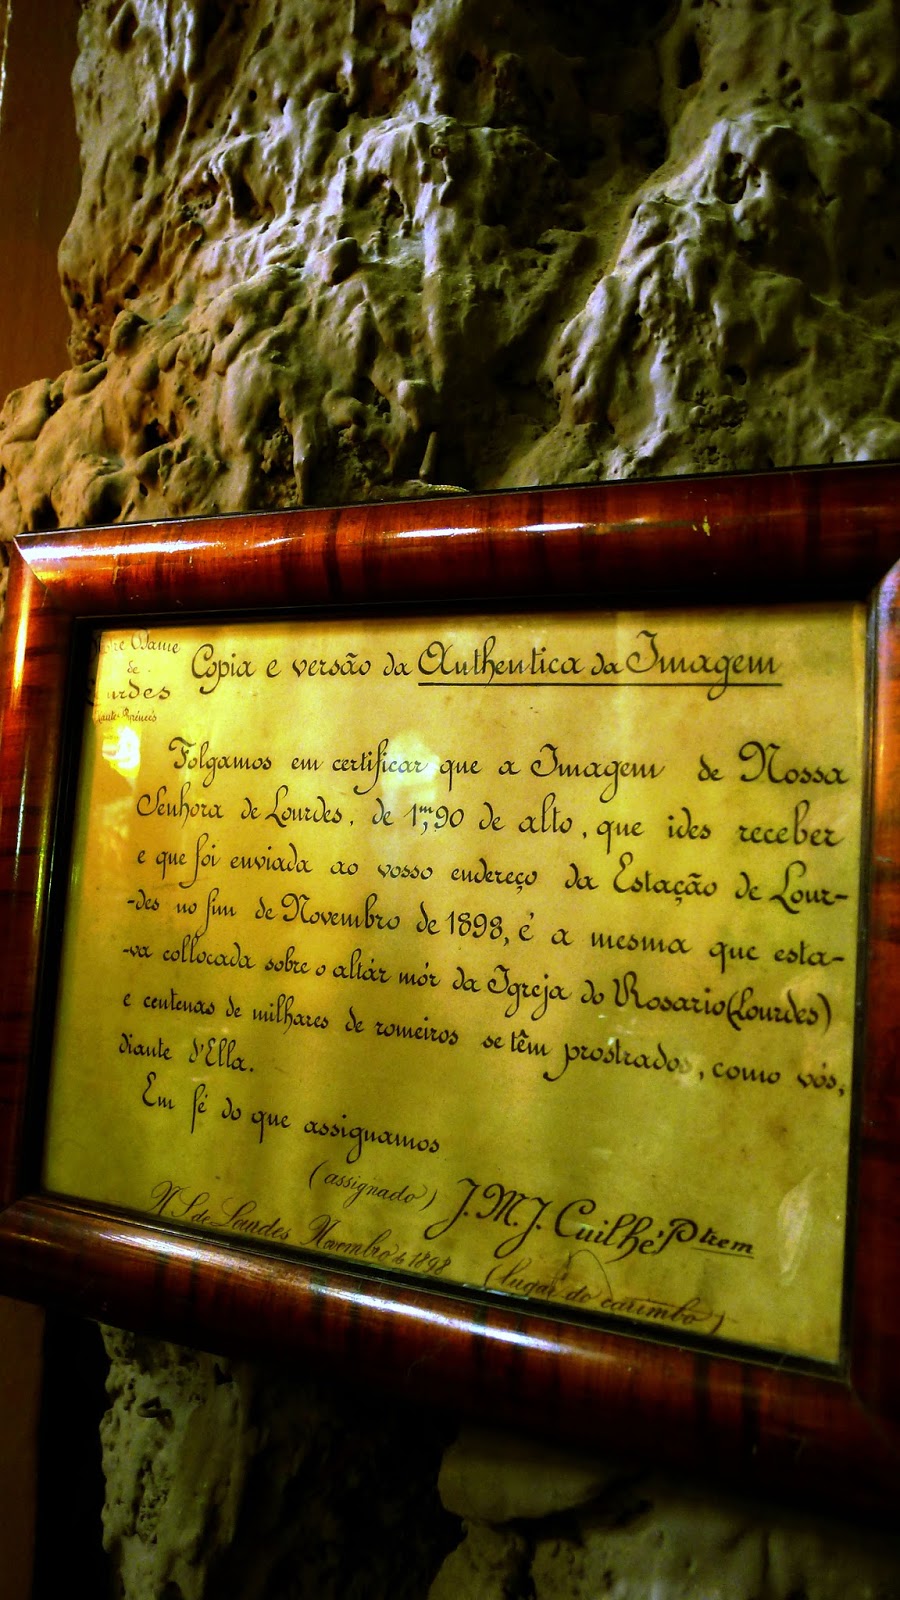 Notre Dame
de
Lourdes
Hautes Pyrénées
Copia e versão da Authentica da Imagem
Folgamos em certificar que a Imagem de Nossa
Senhora de Lourdes, de 1m,90 de alto, que ides receber
e que foi enviada ao vosso endereço da Estação de Lour-
-des no fim de Novembro de 1898, é a mesma que esta-
-va collocada sobre o altár mór da Igreja do Rosario (Lourdes)
e centenas de milhares de romeiros se têm prostrados, como vós,
diante d'Ella.
Em fé do que assignamos
(assignado) J. M. J. Cuilhé Ptrem
N S de Lourdes Novembro de 1898
(lugar do carimbo)